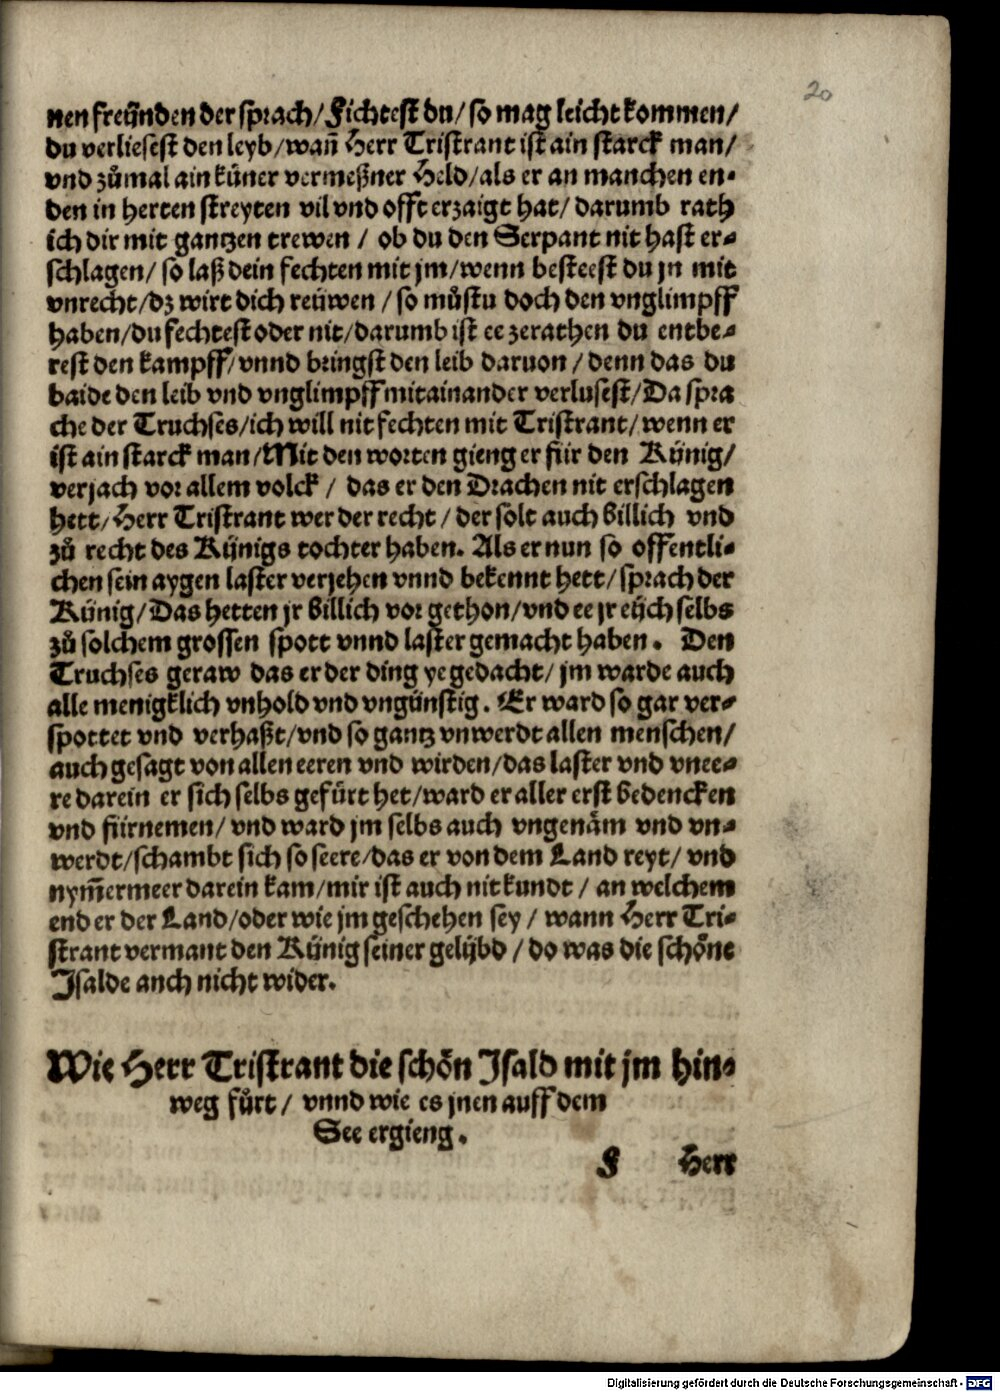 20
nen freünden der sprach/Fichtest du/so mag leicht kommen/
du verliesest den leyb/wañ Herr Tristrant ist ain starck man/
vnd zůmal ain küner vermeßner Held/als er an manchen en-
den in herten streyten vil vnd offt erzaigt hat/ darumb rath
ich dir mit gantzen trewen / ob du den Serpant nit hast er-
schlagen/ so laß dein fechten mit jm/wenn besteest du jn mit
vnrecht/dz wirt dich reüwen / so můstu doch den vnglimpff
haben/du fechtest oder nit/darumb ist ee zerathen du entbe-
rest den kampff/vnnd bringst den leib daruon / denn das du
baide den leib vnd vnglimpff mitainander verlusest/Da spra
che der Truchses/ich will nit fechten mit Tristrant/wenn er
ist ain starck man/Mit den worten gieng er für den Künig/
verjach vor allem volck / das er den Drachen nit erschlagen
hett/Herr Tristrant wer der recht / der solt auch billich vnd
zů recht des Künigs tochter haben. Als er nun so offentli-
chen sein aygen laster verjehen vnnd bekennt hett/sprach der
Künig/Das hetten jr billich vor gethon/vnd ee jr eüch selbs
zů solchem grossen spott vnnd laster gemacht haben. Den
Truchses geraw das er der ding ye gedacht/ jm warde auch
alle menigklich vnhold vnd vngünstig. Er ward so gar ver-
spottet vnd verhaßt/vnd so gantz vnwerdt allen menschen/
auch gesagt von allen eeren vnd wirden/das laster vnd vnee-
re darein er sich selbs gefürt het/ward er aller erst bedencken
vnd fürnemen/ vnd ward jm selbs auch vngenäm vnd vn-
werdt/schambt sich so seere/das er von dem Land reyt/ vnd
nym̃ermeer darein kam/mir ist auch nit kundt / an welchem
end er der Land/oder wie jm geschehen sey / wann Herr Tri-
strant vermant den Künig seiner gelübd / do was die schöne
Isalde auch nicht wider.
Wie Herr Tristrant die schön Isald mit jm hin-
weg fůrt / vnnd wie es jnen auff dem
See ergieng.
F Herr
Digitalisierung gefördert durch die Deutsche Forschungsgemeinschaft - DFG